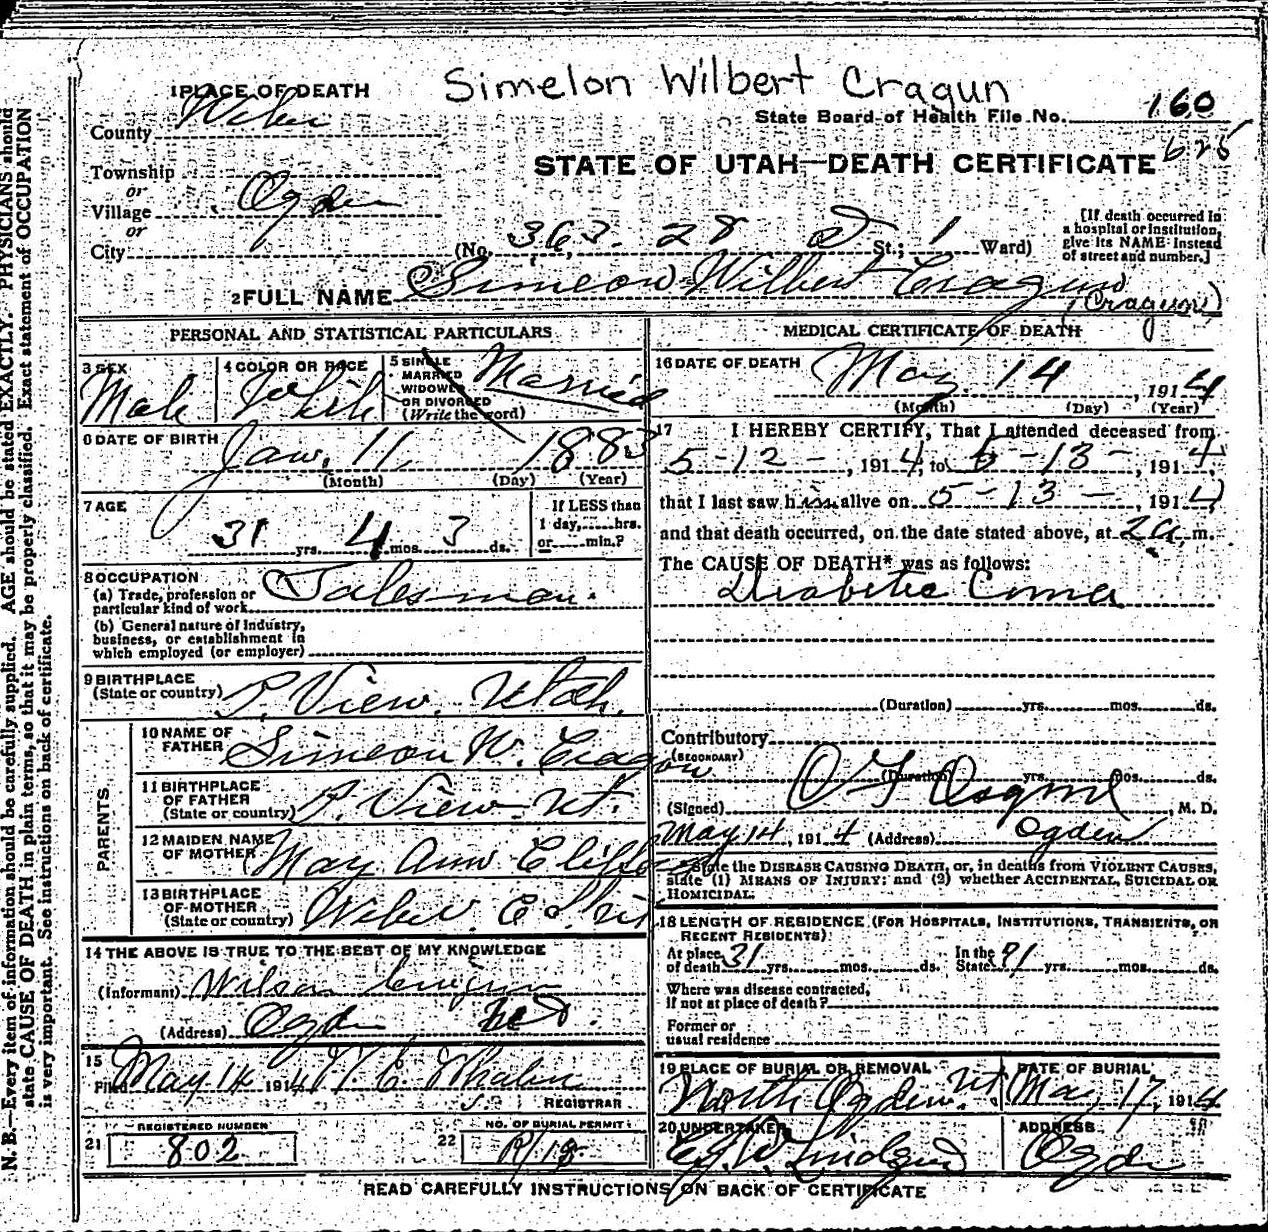 Simelon Wilbert Cragun
1 PLACE OF DEATH
County Weber
State Board of Health File No. 160
625
STATE OF UTAH—DEATH CERTIFICATE
Township
or
Village Ogden
or
City (No. 363. 28 St.; 1 Ward)
[If death occurred in
a hospital or institution,
give its NAME instead
of street and number.]
2 FULL NAME Simeon Wilbert Cragun
(Cragun)
PERSONAL AND STATISTICAL PARTICULARS
3 SEX Male
4 COLOR OR RACE White
5 SINGLE
MARRIED
WIDOWED
OR DIVORCED
(Write the word) Married
6 DATE OF BIRTH Jan. 11, 1883
(Month) (Day) (Year)
7 AGE 31 yrs. 4 mos. 3 ds.
If LESS than
1 day, hrs.
or min.?
8 OCCUPATION
(a) Trade, profession or
particular kind of work Salesman.
(b) General nature of Industry,
business, or establishment in
which employed (or employer)
9 BIRTHPLACE
(State or country) P. View. Utah.
PARENTS.
10 NAME OF
FATHER Simeon W. Cragon
11 BIRTHPLACE
OF FATHER
(State or country) P. View. Ut.
12 MAIDEN NAME
OF MOTHER May Ann Clifford
13 BIRTHPLACE
OF MOTHER
(State or country) Weber Ut
14 THE ABOVE IS TRUE TO THE BEST OF MY KNOWLEDGE
(Informant) Wilson
(Address) Ogden
15
Filed May 14 1914 W. C. Whalen
REGISTRAR
REGISTERED NUMBER
21 802
NO. OF BURIAL PERMIT:
22
MEDICAL CERTIFICATE OF DEATH
16 DATE OF DEATH May. 14, 1914
(Month) (Day) (Year)
17 I HEREBY CERTIFY, That I attended deceased from
5-12-, 1914, to 5-13-, 1914,
that I last saw him alive on 5-13-, 1914,
and that death occurred, on the date stated above, at 2a. m.
The CAUSE OF DEATH* was as follows:
Diabetic Coma
(Duration) yrs. mos. ds.
Contributory
(SECONDARY)
(Duration) yrs. mos. ds.
(Signed) , M. D.
May 14, 1914 (Address) Ogden
State the DISEASE CAUSING DEATH, or, in deaths from VIOLENT CAUSES,
state (1) MEANS OF INJURY; and (2) whether ACCIDENTAL, SUICIDAL OR
HOMICIDAL.
18 LENGTH OF RESIDENCE (FOR HOSPITALS, INSTITUTIONS, TRANSIENTS, OR
RECENT RESIDENTS)
At place
of death 31 yrs. mos. ds.
In the
State yrs. mos. ds.
Where was disease contracted,
if not at place of death?
Former or
usual residence
19 PLACE OF BURIAL OR REMOVAL North Ogden. Ut
DATE OF BURIAL May, 17, 1914
20 UNDERTAKER
ADDRESS Ogden
READ CAREFULLY INSTRUCTIONS ON BACK OF CERTIFICATE
N. B.—Every item of information should be carefully supplied. AGE should be stated EXACTLY. PHYSICIANS should
state CAUSE OF DEATH in plain terms, so that it may be properly classified. Exact statement of OCCUPATION
is very important. See instructions on back of certificate.